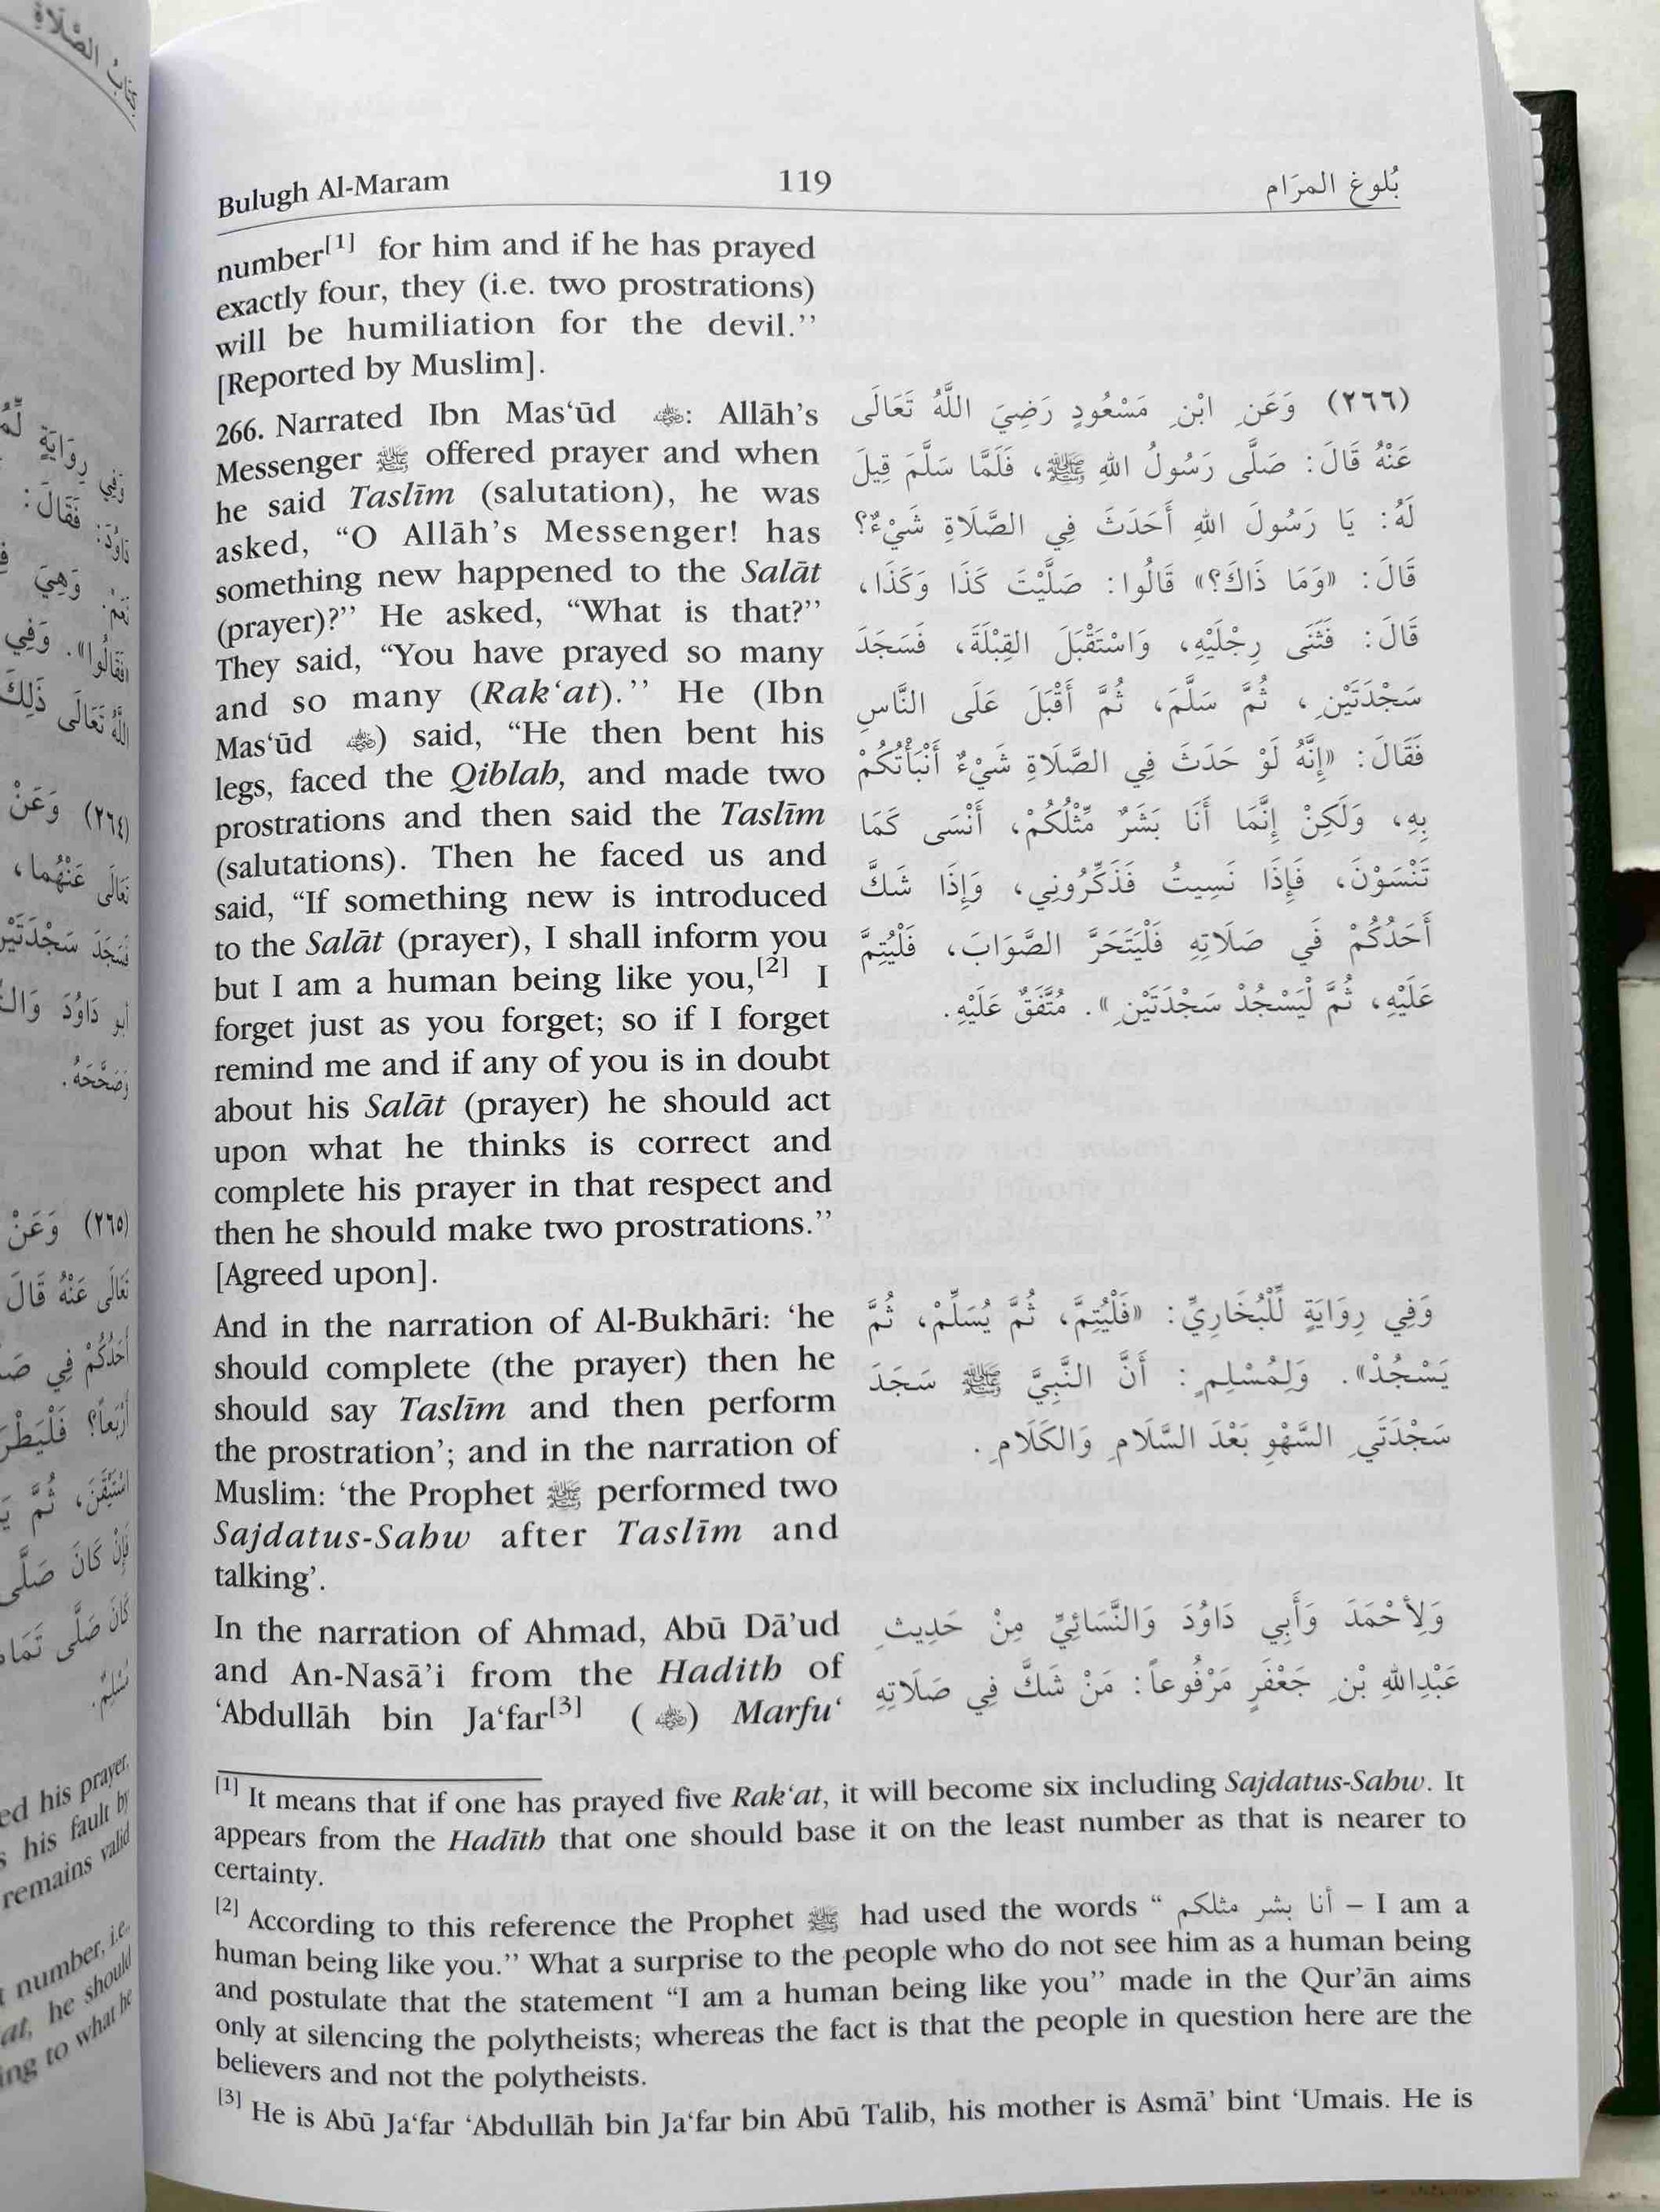 Bulugh Al-Maram 119 بُلوغ المرَام
number[1] for him and if he has prayed
exactly four, they (i.e. two prostrations)
will be humiliation for the devil.’’
[Reported by Muslim].
266. Narrated Ibn Mas‘ūd ﷺ: Allāh’s
Messenger ﷺ offered prayer and when
he said Taslīm (salutation), he was
asked, “O Allāh’s Messenger! has
something new happened to the Salāt
(prayer)?’’ He asked, “What is that?’’
They said, “You have prayed so many
and so many (Rak‘at).’’ He (Ibn
Mas‘ūd) said, “He then bent his
legs, faced the Qiblah, and made two
prostrations and then said the Taslīm
(salutations). Then he faced us and
said, “If something new is introduced
to the Salāt (prayer), I shall inform you
but I am a human being like you,[2] I
forget just as you forget; so if I forget
remind me and if any of you is in doubt
about his Salāt (prayer) he should act
upon what he thinks is correct and
complete his prayer in that respect and
then he should make two prostrations.’’
[Agreed upon].
And in the narration of Al-Bukhāri: ‘he
should complete (the prayer) then he
should say Taslīm and then perform
the prostration’; and in the narration of
Muslim: ‘the Prophet ﷺ performed two
Sajdatus-Sahw after Taslīm and
talking’.
In the narration of Ahmad, Abū Dā’ud
and An-Nasā’i from the Hadith of
‘Abdullāh bin Ja‘far[3] Marfu‘
(٢٦٦) وَعَنِ ابْنِ مَسْعُودٍ رَضِيَ اللَّهُ تَعَالَى
عَنْهُ قَالَ: صَلَّى رَسُولُ اللهِ ﷺ، فَلَمَّا سَلَّمَ قِيلَ
لَهُ: يَا رَسُولَ اللهِ أَحَدَثَ فِي الصَّلَاةِ شَيْءٌ؟
قَالَ: «وَمَا ذَاكَ؟» قَالُوا: صَلَّيْتَ كَذَا وَكَذَا،
قَالَ: فَثَنَى رِجْلَيْهِ، وَاسْتَقْبَلَ القِبْلَةَ، فَسَجَدَ
سَجْدَتَيْنِ، ثُمَّ سَلَّمَ، ثُمَّ أَقْبَلَ عَلَى النَّاسِ
فَقَالَ: «إِنَّهُ لَوْ حَدَثَ فِي الصَّلَاةِ شَيْءٌ أَنْبَأْتُكُمْ
بِهِ، وَلَكِنْ إِنَّمَا أَنَا بَشَرٌ مِّثْلُكُمْ، أَنْسَى كَمَا
تَنْسَوْنَ، فَإِذَا نَسِيتُ فَذَكِّرُونِي، وَإِذَا شَكَّ
أَحَدُكُمْ فِي صَلَاتِهِ فَلْيَتَحَرَّ الصَّوَابَ، فَلْيُتِمَّ
عَلَيْهِ، ثُمَّ لْيَسْجُدْ سَجْدَتَيْنِ». مُتَّفَقٌ عَلَيْهِ.
وَفِي رِوَايَةٍ لِّلْبُخَارِيِّ: «فَلْيُتِمَّ، ثُمَّ يُسَلِّمْ، ثُمَّ
يَسْجُدْ». وَلِمُسْلِمٍ: أَنَّ النَّبِيَّ ﷺ سَجَدَ
سَجْدَتَيِ السَّهْوِ بَعْدَ السَّلَامِ وَالكَلَامِ.
وَلِأَحْمَدَ وَأَبِي دَاوُدَ وَالنَّسَائِيِّ مِنْ حَدِيثِ
عَبْدِاللهِ بْنِ جَعْفَرٍ مَرْفُوعاً: مَنْ شَكَّ فِي صَلَاتِهِ
[1] It means that if one has prayed five Rak‘at, it will become six including Sajdatus-Sahw. It
appears from the Hadīth that one should base it on the least number as that is nearer to
certainty.
[2] According to this reference the Prophet ﷺ had used the words “ أنا بشر مثلكم – I am a
human being like you.’’ What a surprise to the people who do not see him as a human being
and postulate that the statement “I am a human being like you’’ made in the Qur’ān aims
only at silencing the polytheists; whereas the fact is that the people in question here are the
believers and not the polytheists.
[3] He is Abū Ja‘far ‘Abdullāh bin Ja‘far bin Abū Talib, his mother is Asmā’ bint ‘Umais. He is